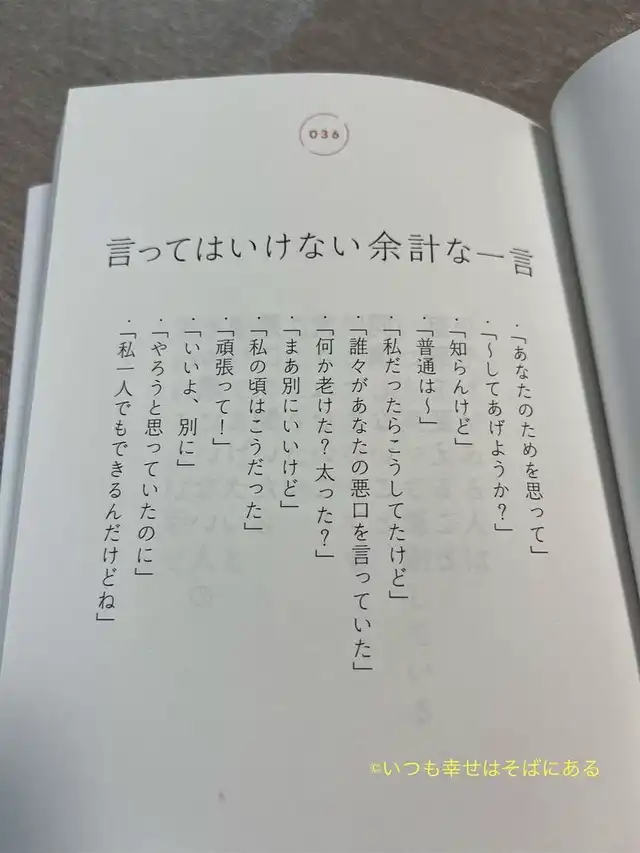 036
言ってはいけない余計な一言
・「あなたのためを思って」
・「〜してあげようか?」
・「知らんけど」
・「普通は〜」
・「私だったらこうしてたけど」
・「誰々があなたの悪口を言っていた」
・「何か老けた?太った?」
・「まあ別にいいけど」
・「私の頃はこうだった」
・「頑張って!」
・「いいよ、別に」
・「やろうと思っていたのに」
・「私一人でもできるんだけどね」
©いつも幸せはそばにある